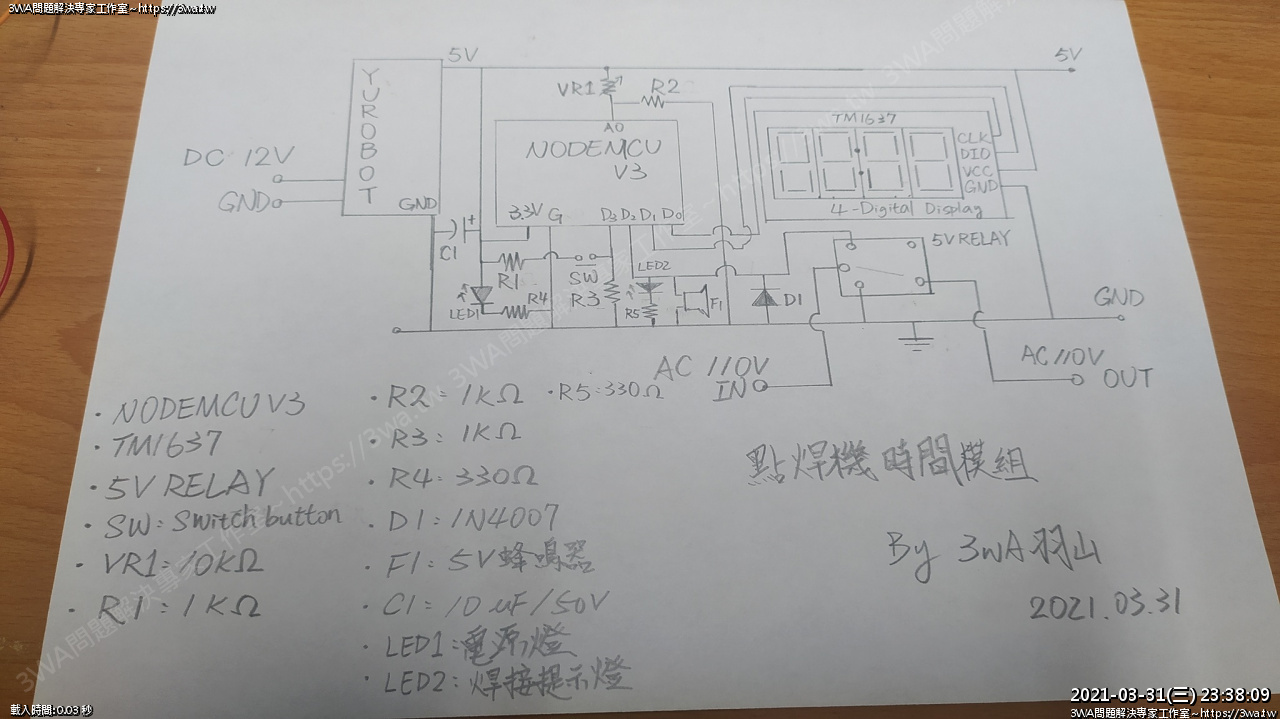 3WA問題解決專家工作室~https://3wa.tw
5V
5V
YUROBOT
VR1
R2
A0
NODEMCU
V3
TM1637
CLK
DIO
VCC
GND
4-Digital Display
DC 12V
GND
GND
3.3V G D3 D2 D1 D0
C1
R1
SW
LED2
5V RELAY
R3
R4
LED1
R5
F1
D1
GND
AC 110V
IN
AC 110V
OUT
・NODEMCU V3
・TM1637
・5V RELAY
・SW: Switch button
・VR1: 10KΩ
・R1: 1KΩ
・R2: 1KΩ ・R5: 330Ω
・R3: 1KΩ
・R4: 330Ω
・D1: 1N4007
・F1: 5V蜂鳴器
・C1: 10uF/50V
・LED1: 電源燈
・LED2: 焊接提示燈
點焊機時間模組
By 3WA羽山
2021.03.31
3WA問題解決專家工作室~https://3wa.tw
載入時間:0.03 秒
2021-03-31(三) 23:38:09
3WA問題解決專家工作室~https://3wa.tw